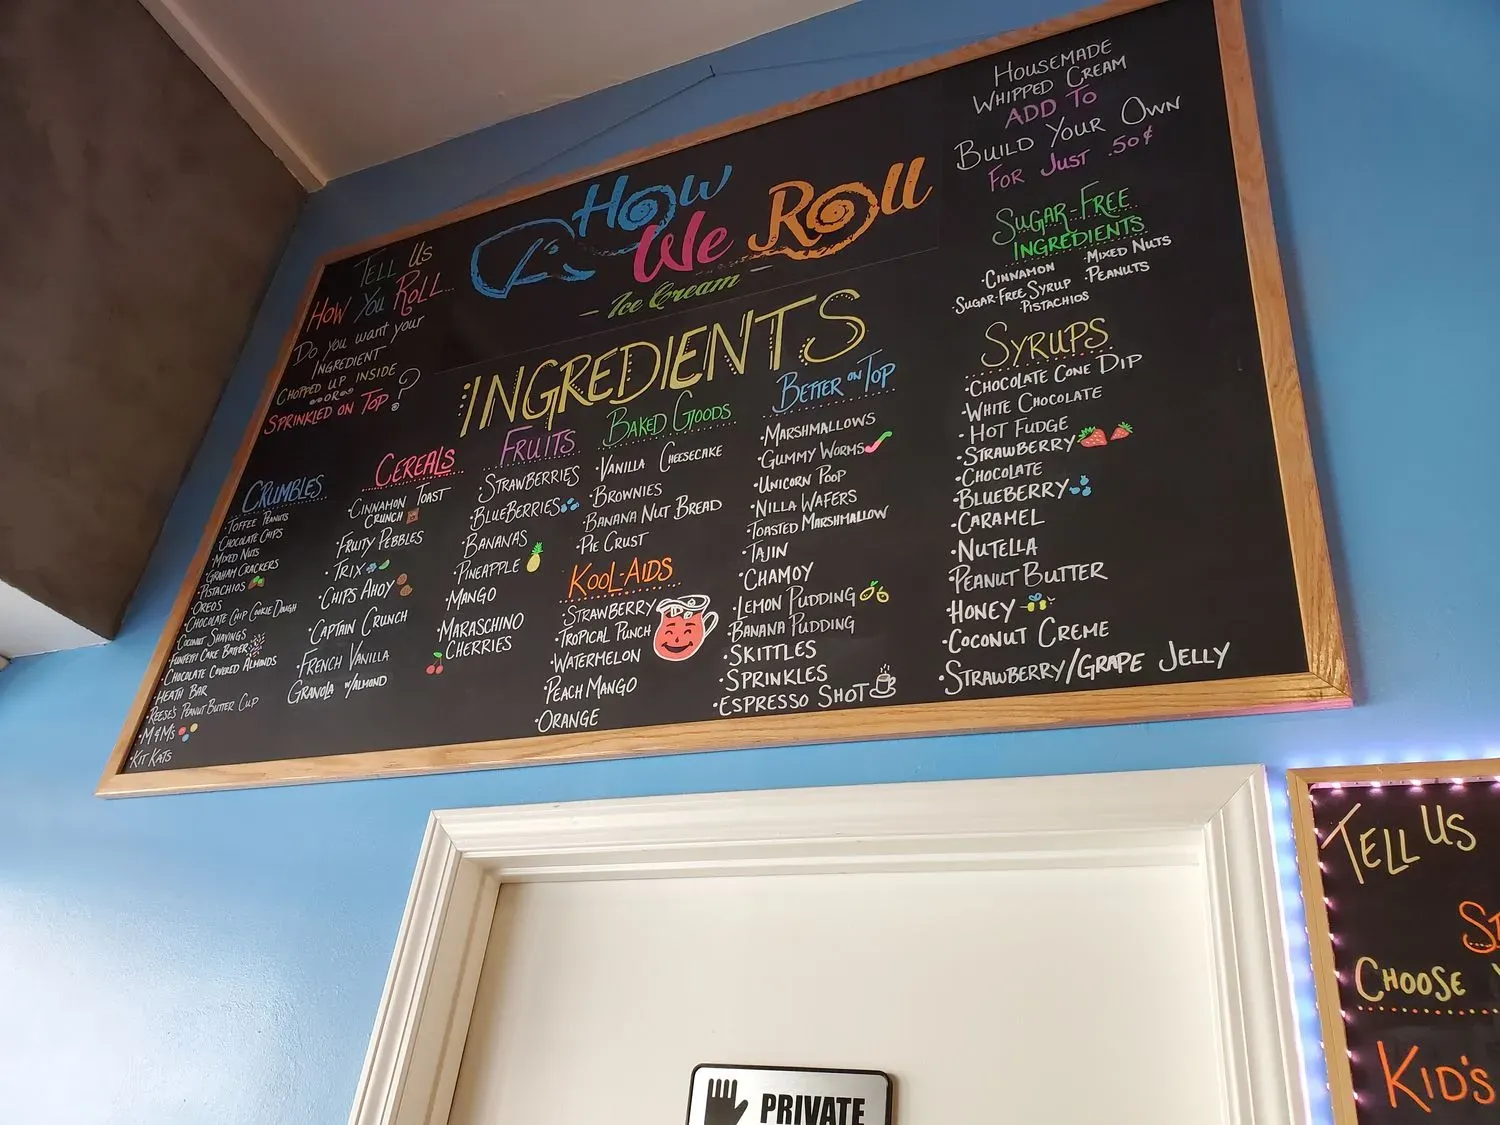 TELL US
HOW YOU ROLL...
Do you want your
INGREDIENT
CHOPPED UP INSIDE
OR
SPRINKLED ON TOP?
How
We Roll
Ice Cream
HOUSEMADE
WHIPPED CREAM
ADD TO
BUILD YOUR OWN
FOR JUST .50¢
INGREDIENTS
CRUMBLES
TOFFEE PEANUTS
CHOCOLATE CHIPS
MIXED NUTS
GRAHAM CRACKERS
PISTACHIOS
OREOS
CHOCOLATE CHIP COOKIE DOUGH
COCONUT SHAVINGS
FUNFETTI CAKE BATTER
CHOCOLATE COVERED ALMONDS
HEATH BAR
REESE'S PEANUT BUTTER CUP
M&MS
KIT KATS
CEREALS
CINNAMON TOAST
CRUNCH
FRUITY PEBBLES
TRIX
CHIPS AHOY
CAPTAIN CRUNCH
FRENCH VANILLA
GRANOLA W/ALMOND
FRUITS
STRAWBERRIES
BLUEBERRIES
BANANAS
PINEAPPLE
MANGO
MARASCHINO
CHERRIES
BAKED GOODS
VANILLA CHEESECAKE
BROWNIES
BANANA NUT BREAD
PIE CRUST
KOOL-AIDS
STRAWBERRY
TROPICAL PUNCH
WATERMELON
PEACH MANGO
ORANGE
BETTER ON TOP
MARSHMALLOWS
GUMMY WORMS
UNICORN POOP
NILLA WAFERS
TOASTED MARSHMALLOW
TAJIN
CHAMOY
LEMON PUDDING
BANANA PUDDING
SKITTLES
SPRINKLES
ESPRESSO SHOT
SUGAR-FREE
INGREDIENTS
CINNAMON
MIXED NUTS
SUGAR-FREE SYRUP
PEANUTS
PISTACHIOS
SYRUPS
CHOCOLATE CONE DIP
WHITE CHOCOLATE
HOT FUDGE
STRAWBERRY
CHOCOLATE
BLUEBERRY
CARAMEL
NUTELLA
PEANUT BUTTER
HONEY
COCONUT CREME
STRAWBERRY/GRAPE JELLY
TELL US
CHOOSE
KID'S
PRIVATE